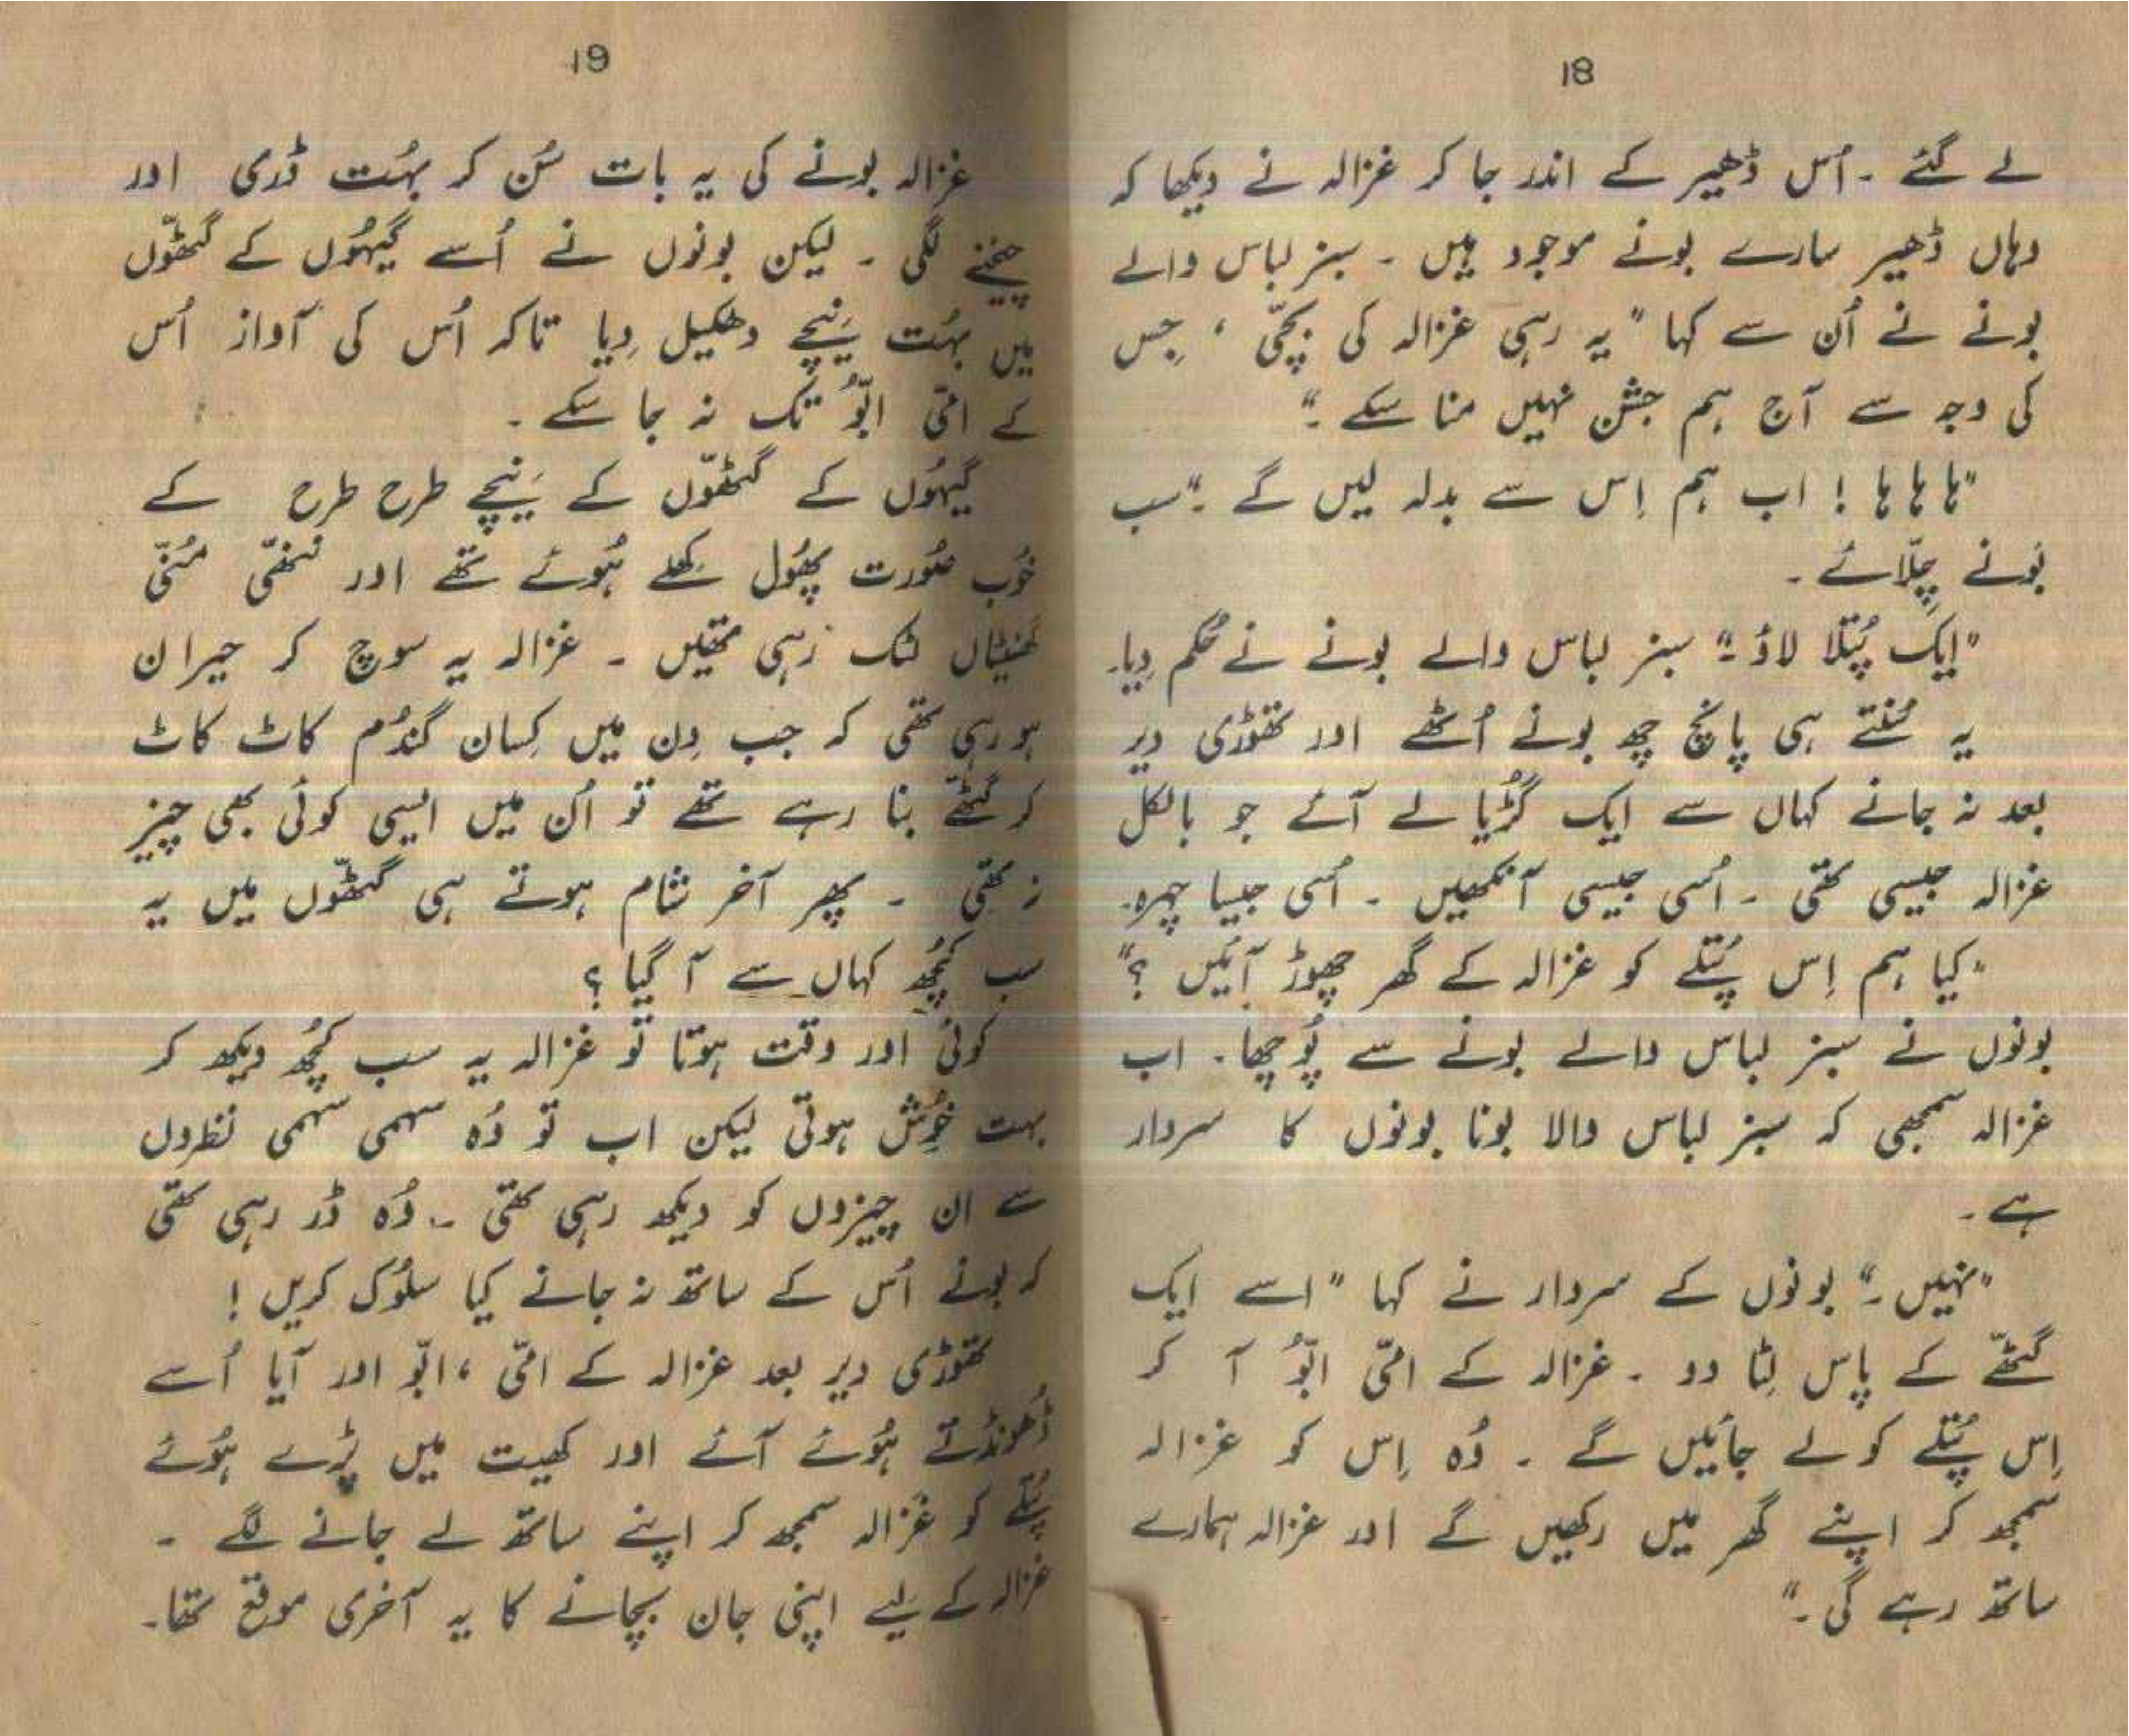 18
لے گئے ۔ اُس ڈھیر کے اندر جا کر غزالہ نے دیکھا کہ
وہاں ڈھیر سارے بونے موجود ہیں ۔ سبز لباس والے
بونے نے اُن سے کہا "یہ رہی غزالہ کی بچّی ، جِس
کی وجہ سے آج ہم جشن نہیں منا سکے ۔"
"ہا ہا ہا ! اب ہم اِس سے بدلہ لیں گے ۔" سب
بَونے چِلّائے ۔
"ایک پُتلا لاؤ ۔" سبز لباس والے بونے نے حُکم دِیا۔
یہ سُنتے ہی پانچ چھ بونے اُٹھے اور تھوڑی دیر
بعد نہ جانے کہاں سے ایک گُڑیا لے آئے جو بالکل
غزالہ جیسی تھی ۔ اُسی جیسی آنکھیں ۔ اُسی جیسا چہرہ۔
"کیا ہم اِس پُتلے کو غزالہ کے گھر چھوڑ آئیں ؟"
بونوں نے سبز لباس والے بونے سے پُوچھا ۔ اب
غزالہ سمجھی کہ سبز لباس والا بونا بونوں کا سردار
ہے ۔
"نہیں ۔" بونوں کے سردار نے کہا "اسے ایک
گٹھّے کے پاس لِٹا دو ۔ غزالہ کے امّی ابّو آ کر
اِس پُتلے کو لے جائیں گے ۔ وُہ اِس کو غزالہ
سمجھ کر اپنے گھر میں رکھیں گے اور غزالہ ہمارے
ساتھ رہے گی ۔"
19
غزالہ بونے کی یہ بات سُن کر بہُت ڈری اور
چیخنے لگی ۔ لیکن بونوں نے اُسے گیہُوں کے گٹھّوں
میں بہُت نِیچے دھکیل دِیا تاکہ اُس کی آواز اُس
کے امّی ابّو تک نہ جا سکے ۔
گیہُوں کے گٹھّوں کے نِیچے طرح طرح کے
خُوب صُورت پھُول کھِلے ہُوئے تھے اور ننھّی مُنّی
گھنٹیاں لٹک رہی تھیں ۔ غزالہ یہ سوچ کر حیران
ہو رہی تھی کہ جب دِن میں کِسان گندُم کاٹ کاٹ
کر گٹھّے بنا رہے تھے تو اُن میں ایسی کوئی بھی چیز
نہ تھی ۔ پھر آخر شام ہوتے ہی گٹھّوں میں یہ
سب کُچھ کہاں سے آ گیا ؟
کوئی اور وقت ہوتا تو غزالہ یہ سب کُچھ دیکھ کر
بہت خُوش ہوتی لیکن اب تو وُہ سہمی سہمی نظروں
سے ان چیزوں کو دیکھ رہی تھی ۔ وُہ ڈر رہی تھی
کہ بونے اُس کے ساتھ نہ جانے کیا سلُوک کریں !
تھوڑی دیر بعد غزالہ کے امّی ، ابّو اور آیا اُسے
ڈھُونڈتے ہُوئے آئے اور کھیت میں پڑے ہُوئے
پُتلے کو غزالہ سمجھ کر اپنے ساتھ لے جانے لگے ۔
غزالہ کے لیے اپنی جان بچانے کا یہ آخری موقع تھا۔